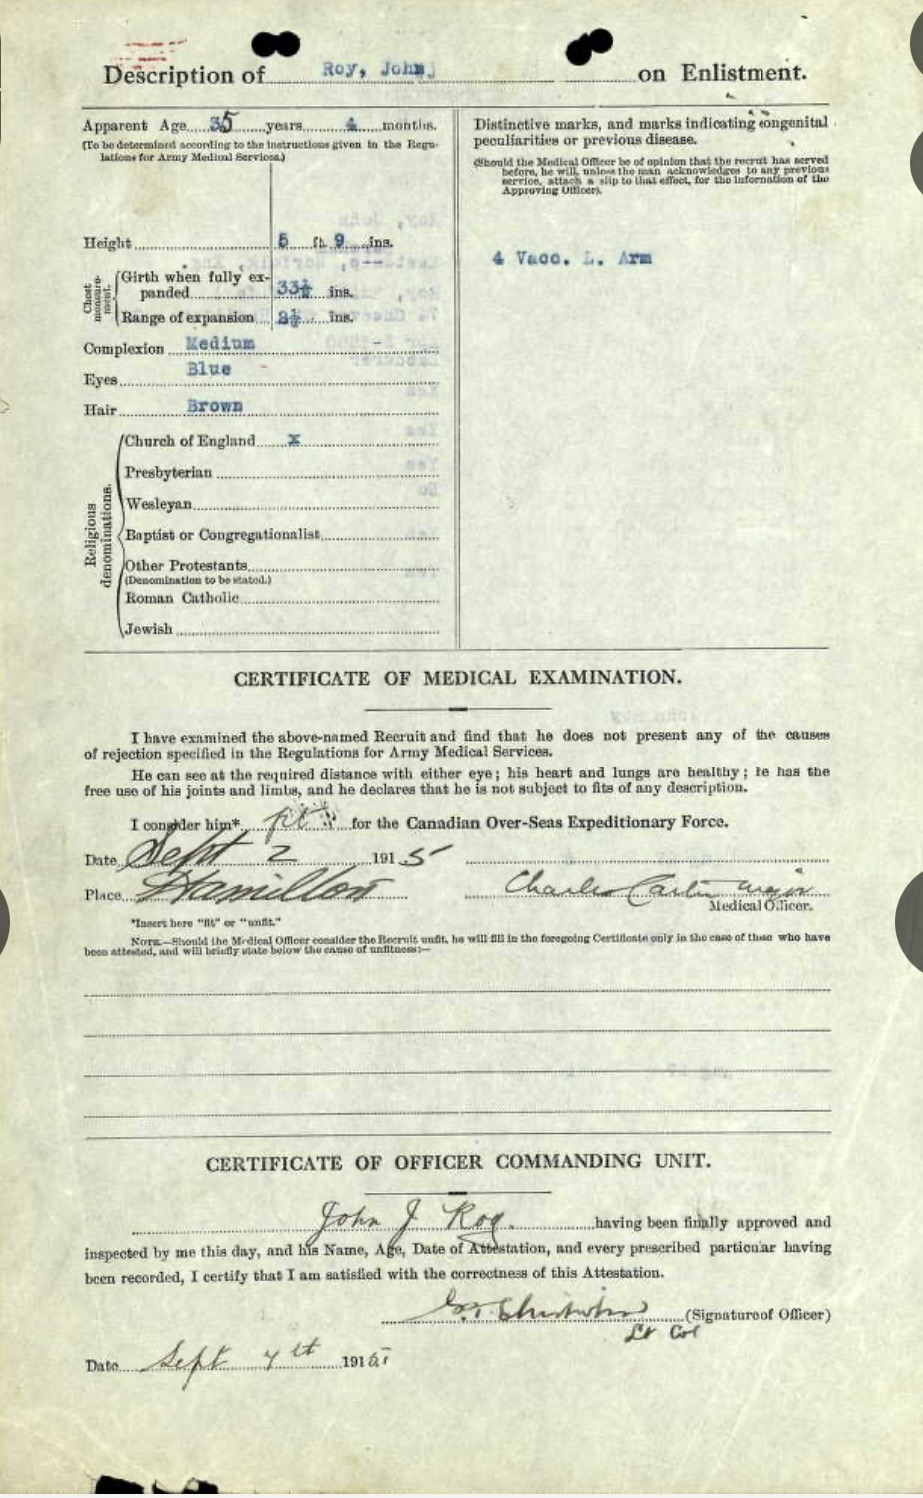 Description of Roy, John, on Enlistment.
Apparent Age 35 years 4 months.
(To be determined according to the instructions given in the Regulations for Army Medical Services.)
Height 5 ft. 9 ins.
Chest measurement.
Girth when fully expanded 33½ ins.
Range of expansion ins.
Complexion Medium
Eyes Blue
Hair Brown
Religious denominations.
Church of England X
Presbyterian
Wesleyan
Baptist or Congregationalist
Other Protestants
(Denomination to be stated.)
Roman Catholic
Jewish
Distinctive marks, and marks indicating congenital
peculiarities or previous disease.
(Should the Medical Officer be of opinion that the recruit has served
before, he will, unless the man acknowledges to any previous
service, attach a slip to that effect, for the information of the
Approving Officer).
4 Vacc. L. Arm
CERTIFICATE OF MEDICAL EXAMINATION.
I have examined the above-named Recruit and find that he does not present any of the causes
of rejection specified in the Regulations for Army Medical Services.
He can see at the required distance with either eye; his heart and lungs are healthy; he has the
free use of his joints and limbs, and he declares that he is not subject to fits of any description.
I consider him* fit for the Canadian Over-Seas Expeditionary Force.
Date Sept 2 1915
Place Hamilton
Charles Carter Major
Medical Officer.
*Insert here "fit" or "unfit."
NOTE.—Should the Medical Officer consider the Recruit unfit, he will fill in the foregoing Certificate only in the case of those who have
been attested, and will briefly state below the cause of unfitness:—
CERTIFICATE OF OFFICER COMMANDING UNIT.
John J Roy. having been finally approved and
inspected by me this day, and his Name, Age, Date of Attestation, and every prescribed particular having
been recorded, I certify that I am satisfied with the correctness of this Attestation.
(Signature of Officer)
Lt Col
Date Sept 7th 1915